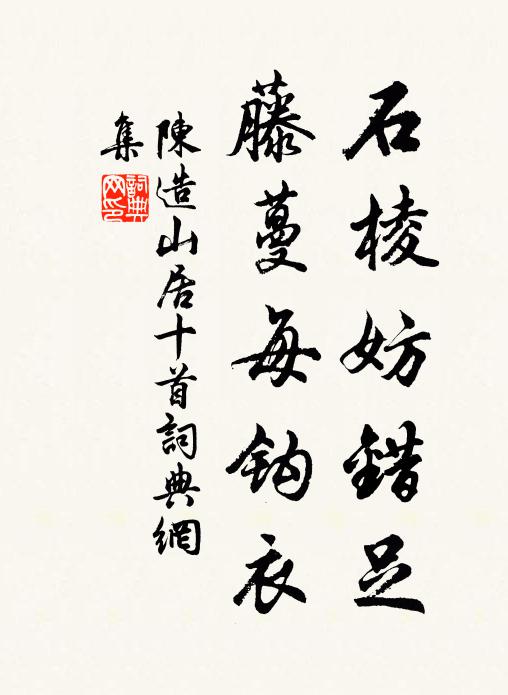 石棱妨錯足
藤蔓每鈎衣
陳造山居十首詞典網
集
詞典
网印